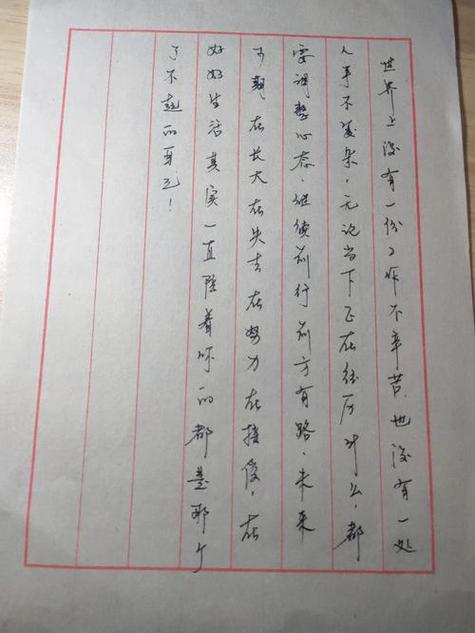 世界上没有一份工作不辛苦，也没有一处
人事不复杂，无论当下正在经历什么，都
要调整心态，继续前行前方有路，未来
可期在长大在失去在努力在接受，在
好好生活其实一直陪着你的都是那个
了不起的自己！